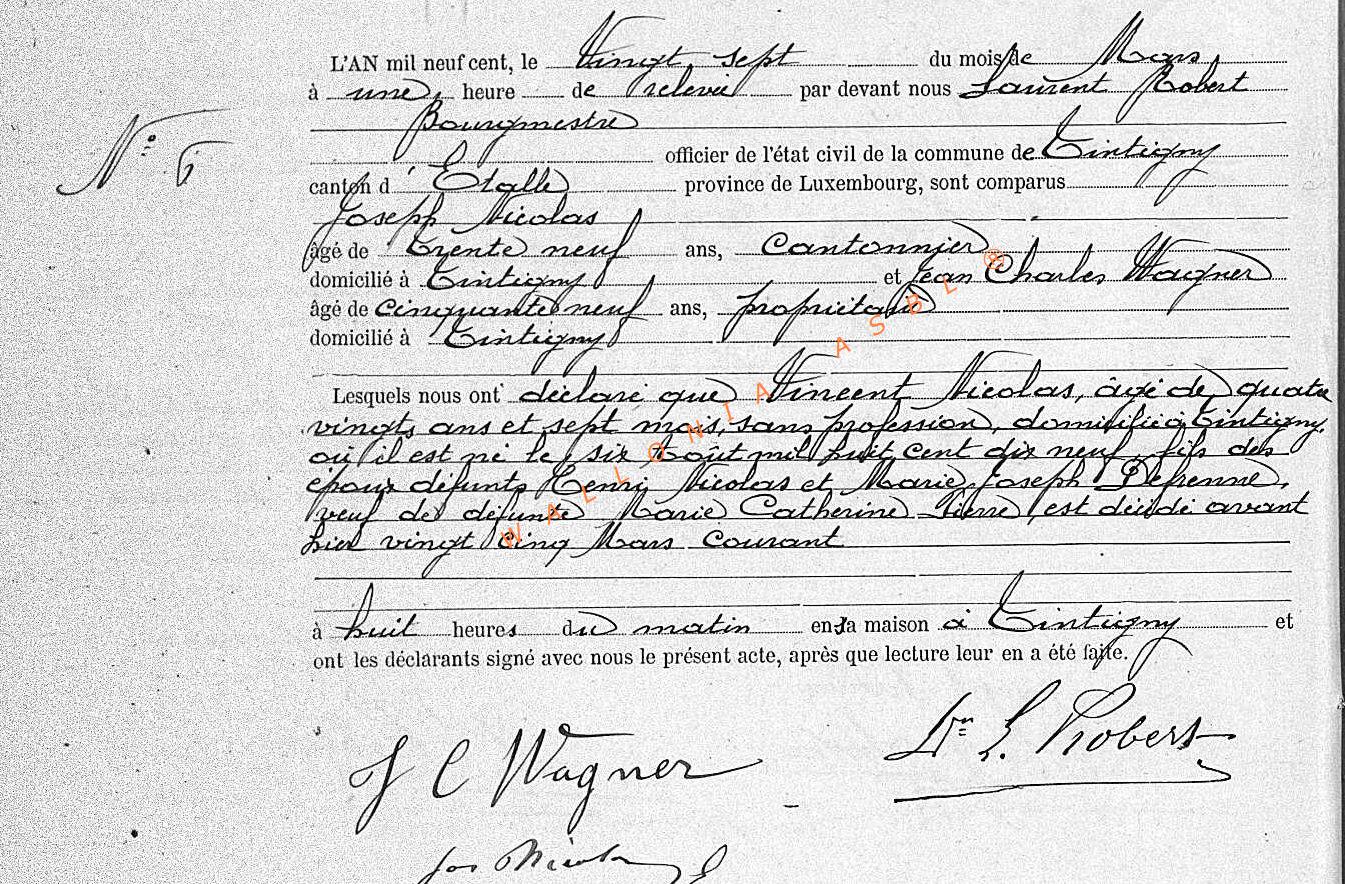 L'AN mil neuf cent, le Vingt sept du mois de Mars
à une heure de relevée par devant nous Laurent Robert
Bourgmestre
N° 6
officier de l'état civil de la commune de Tintigny
canton d' Etalle province de Luxembourg, sont comparus
Joseph Nicolas
âgé de trente neuf ans, cantonnier
domicilié à Tintigny et Jean Charles Wagner
âgé de cinquante neuf ans, propriétaire
domicilié à Tintigny
Lesquels nous ont déclaré que Vincent Nicolas, âgé de quatre
vingts ans et sept mois, sans profession, domicilié à Tintigny,
où il est né le six Août mil huit cent dix neuf, fils des
époux défunts Henri Nicolas et Marie Joseph Defrenne,
veuf de défunte Marie Catherine Pierre, est décédé avant
hier vingt cinq Mars courant
WALLONIA ASBL ®
à huit heures du matin en sa maison à Tintigny et
ont les déclarants signé avec nous le présent acte, après que lecture leur en a été faite.
J C Wagner
L. Robert
Jos Nicolas